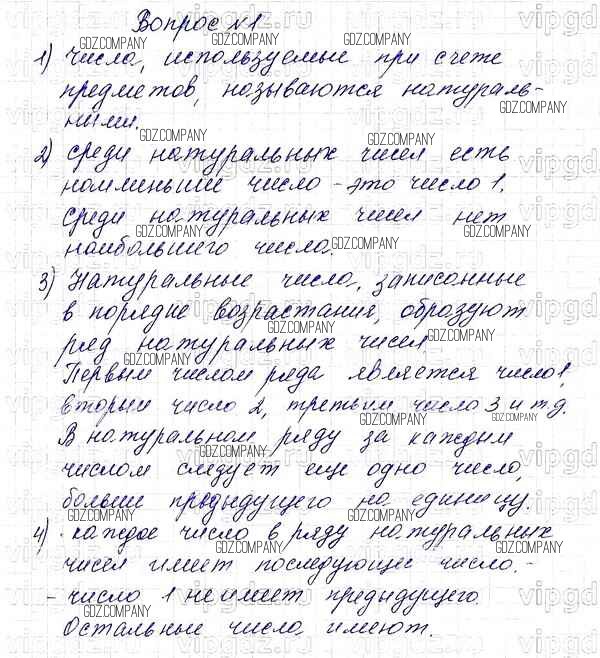 Вопрос №1
1) Числа, используемые при счете
предметов, называются натураль-
ными.
2) Среди натуральных чисел есть
наименьшее число - это число 1.
Среди натуральных чисел нет
наибольшего числа.
3) Натуральные числа, записанные
в порядке возрастания, образуют
ряд натуральных чисел.
Первым числом ряда является число 1,
вторым число 2, третьим число 3 и т.д.
В натуральном ряду за каждым
числом следует еще одно число,
больше предыдущего на единицу.
4) · каждое число в ряду натуральных
чисел имеет последующее число. -
- число 1 не имеет предыдущего.
Остальные числа имеют.